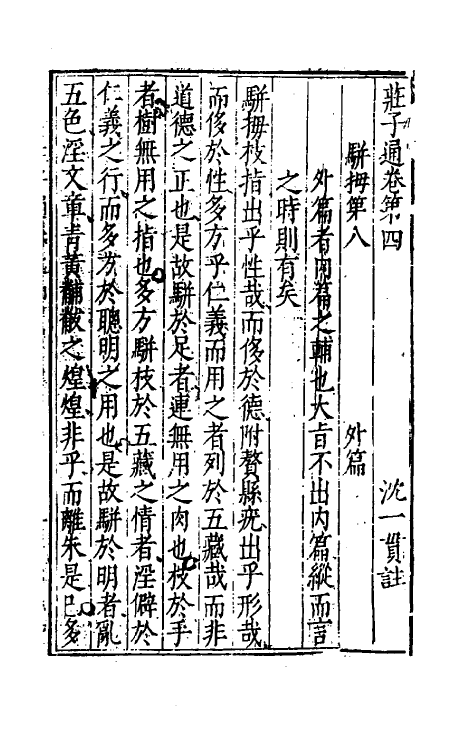 莊子通卷第四　沈一貫註
駢拇第八　外篇
外篇者內篇之輔也大旨不出內篇縱而言
之時則有矣
駢拇枝指出乎性哉而侈於德附贅縣疣出乎形哉
而侈於性多方乎仁義而用之者列於五藏哉而非
道德之正也是故駢於足者連無用之肉也枝於手
者樹無用之指也多方駢枝於五藏之情者淫僻於
仁義之行而多方於聰明之用也是故駢於明者亂
五色淫文章青黃黼黻之煌煌非乎而離朱是已多